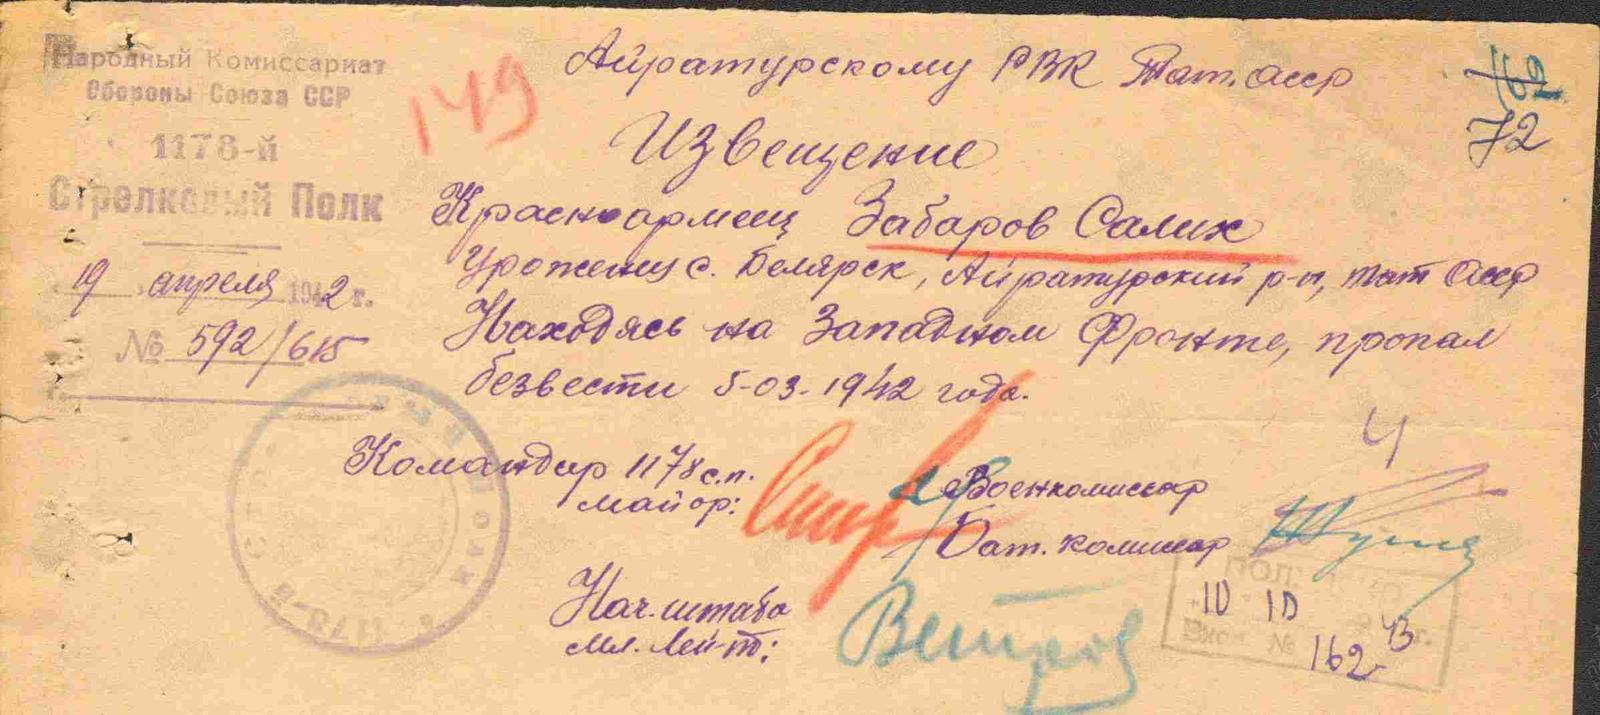 Народный Комиссариат
Обороны Союза ССР
1178-й
Стрелковый Полк
"19" апреля 1942 г.
№ 592/615
149
162
72
Айратурскому РВК Тат. АССР
Извещение
Красноармеец Забаров Салих
Уроженец с. Белярск, Айратурский р-н, тат АССР
Находясь на Западном Фронте, пропал
безвести 5-03-1942 года.
4
Командир 1178 с.п.
майор:
Военкомиссар
Бат. комиссар
Нач. штаба
Мл. Лей-т:
Ветров
10 10 43 г.
Вход №
162